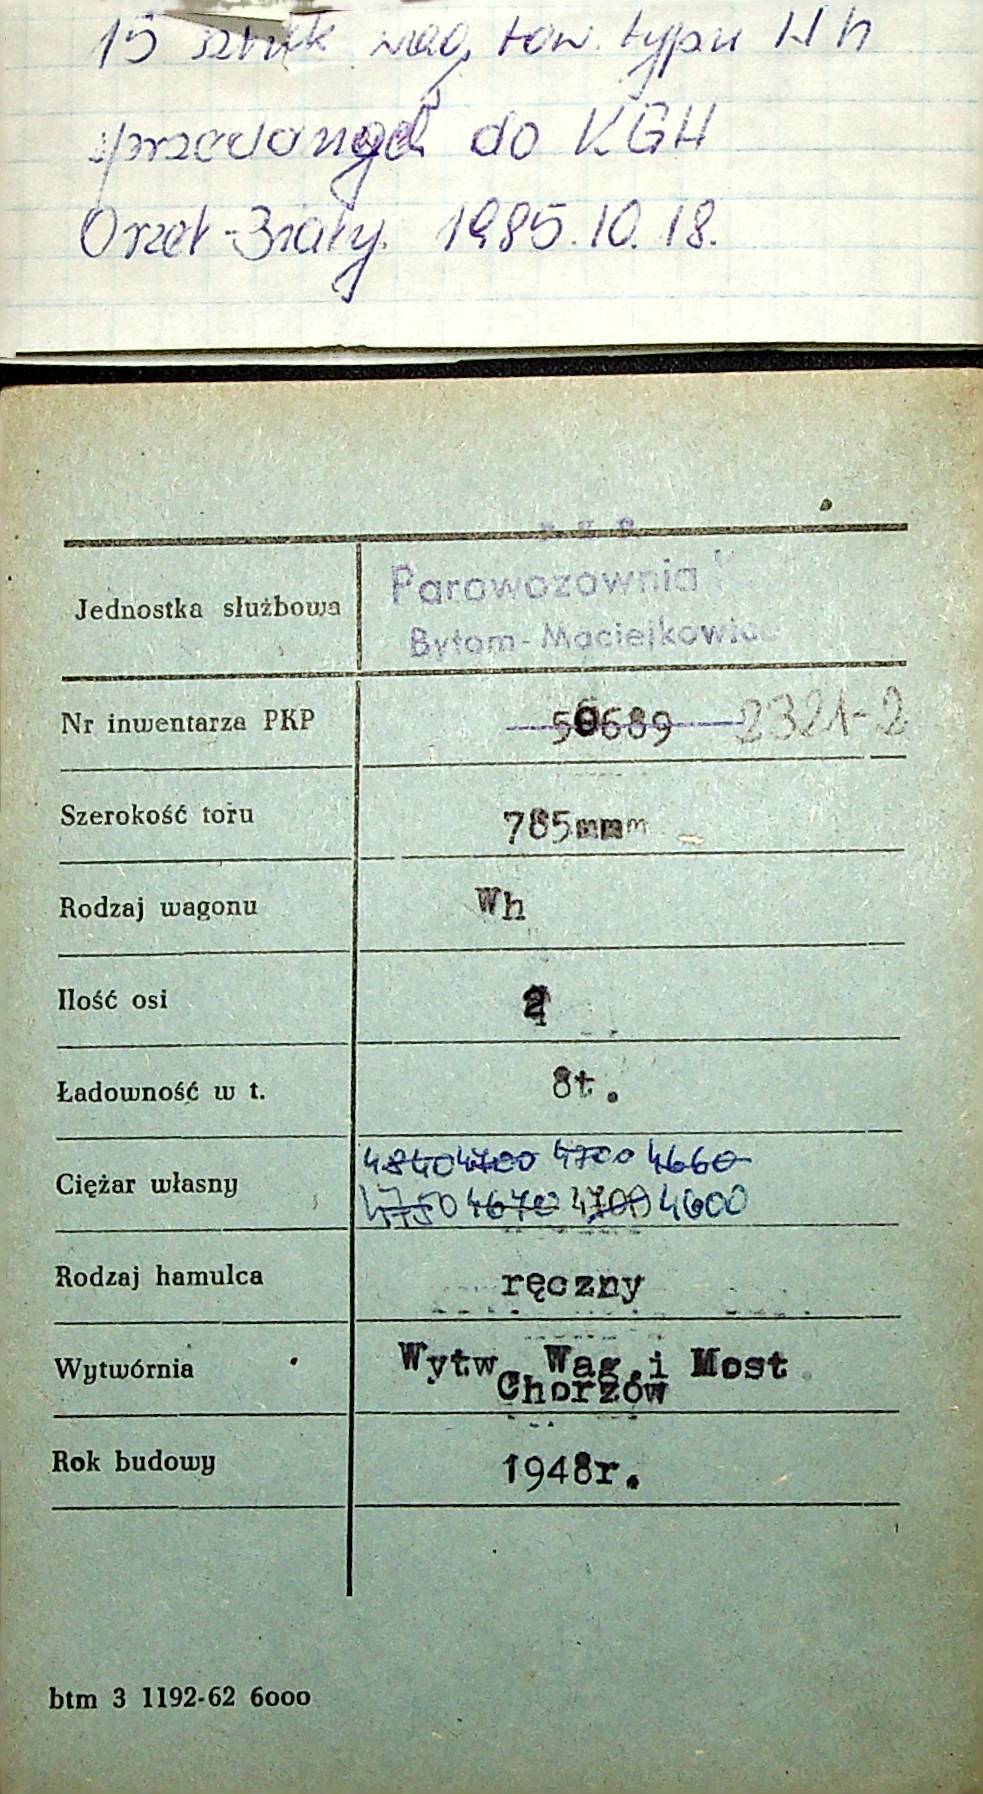 15 sztuk wag. tow. typu Wh
sprzedanych do KGH
Orzeł-Biały. 1985.10.18.
P K P
Jednostka służbowa Parowozownia
Bytom-Maciejkowice
Nr inwentarza PKP 50689 2321-2
Szerokość toru 785mmm
Rodzaj wagonu Wh
Ilość osi
Ładowność w t. 8t.
4840 4700 4700 4660
Ciężar własny 4750 4670 4700 4600
Rodzaj hamulca ręczny
Wytwórnia Wytw. Wag. i Most
Chorzów
Rok budowy 1948r.
btm 3 1192-62 6000